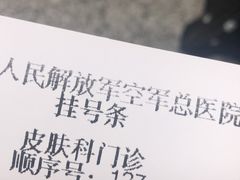 人民解放军空军总医院
挂号条
皮肤科门诊
顺序号：127